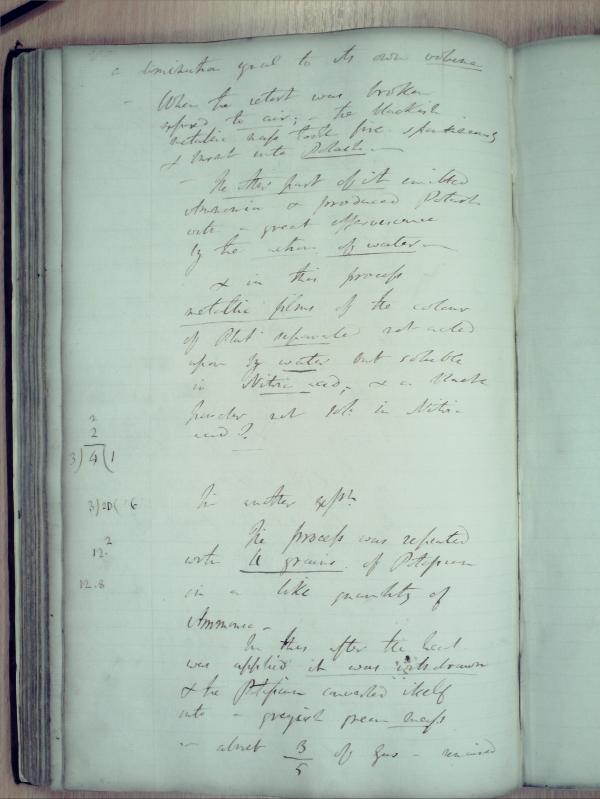 a diminution equal to its own volume
- When the retort was broken
exposed to air; - the blackish
metallic mass took fire spontaneously
& burnt into Potash -
- The other part of it emitted
Ammonia & produced Potash
with a great effervescence
by the action of water -
& in this process
metallic films of the colour
of Plat separated not acted
upon by water but soluble
in Nitric acid, & a black
powder not sol. in Nitric
acid?.
2
2
3)4(1
3)20( 6
12.2
12.8
In another expt.
The process was repeated
with grains of Potassium
in a like quantity of
Ammonia -
In this after the heat
was applied it was withdrawn
& the Potassium converted itself
into a greyish green mass
- about 3/5 of gas - remained